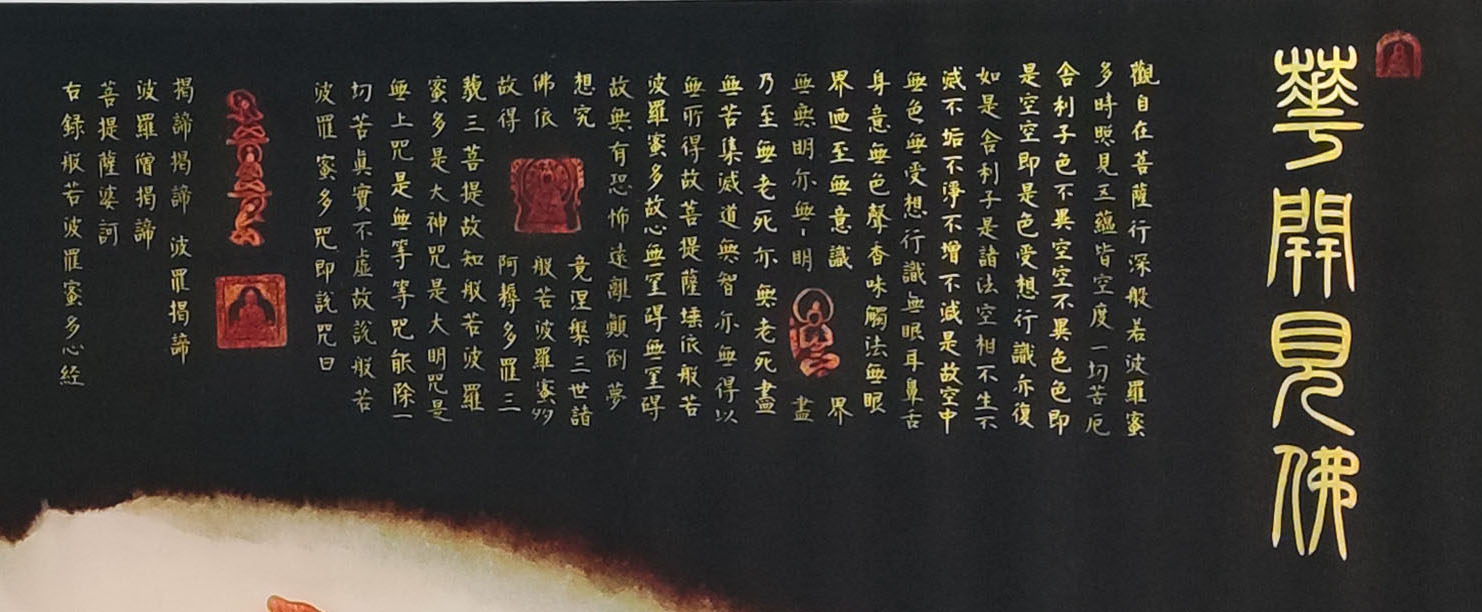 華開見佛
觀自在菩薩行深般若波羅蜜
多時照見五蘊皆空度一切苦厄
舍利子色不異空空不異色色即
是空空即是色受想行識亦復
如是舍利子是諸法空相不生不
滅不垢不淨不增不減是故空中
無色無受想行識無眼耳鼻舌
身意無色聲香味觸法無眼
界迺至無意識 界
無無明亦無丶明 盡
乃至無老死亦無老死盡
無苦集滅道無智亦無得以
無所得故菩提薩埵依般若
波羅蜜多故心無罣碍無罣碍
故無有恐怖遠離顛倒夢
想究 竟涅槃三世諸
佛依 般若波羅蜜多
故得 阿耨多羅三
藐三菩提故知般若波羅
蜜多是大神咒是大明咒是
無上咒是無等等咒能除一
切苦真實不虛故說般若
波羅蜜多咒即説咒曰
揭諦揭諦 波羅揭諦
波羅僧揭諦
菩提薩婆訶
右録般若波羅蜜多心経